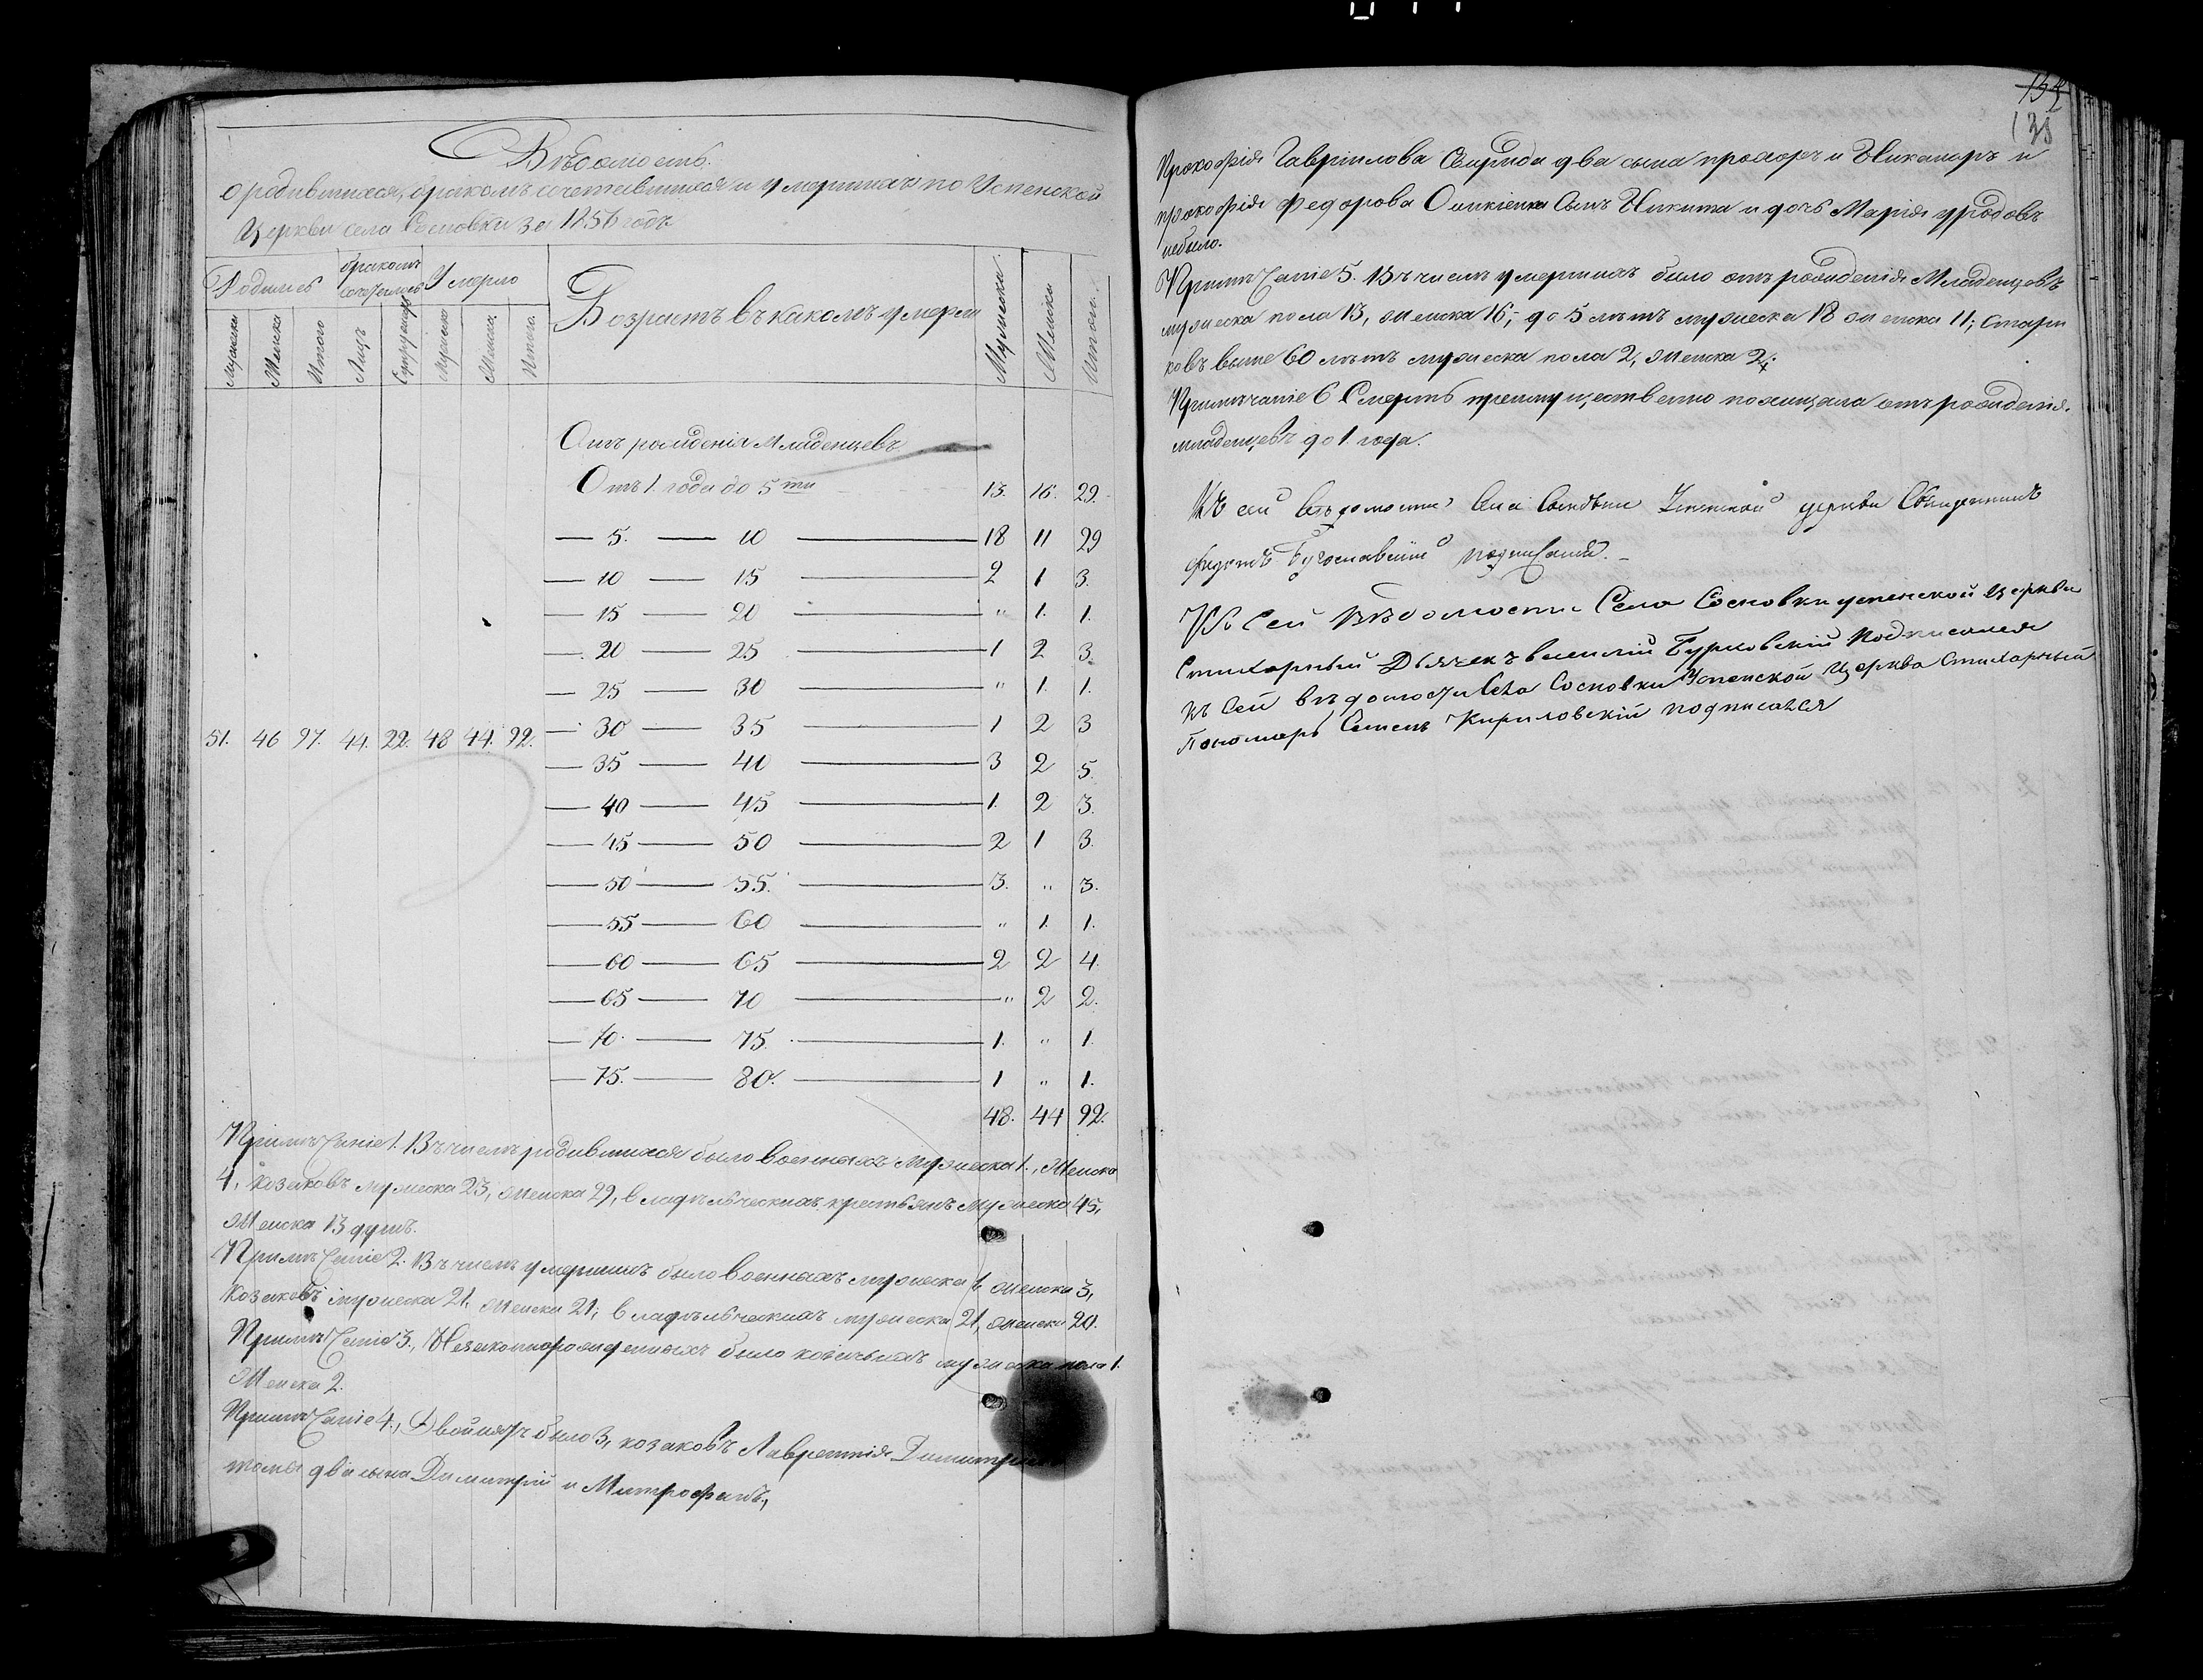 135
135
Вѣдомость.
о родившихся, бракомъ сочетавшихся и умершихъ по Успенской
Церкви села Сосновки за 1856 годъ
Родилось бракомъ сочеталось Умерло Возрастъ въ какомъ умерли Мужеска. Женска Итого.
Мужеска Женска Итого Лицъ Супружествъ Мужеска Женска Итого.
Отъ рожденія Младенцевъ
Отъ 1. года до 5ти 13. 16. 29.
— 5. — 10 — 18 11 29
— 10 — 15 — 2 1 3.
— 15 — 20 — " 1. 1.
— 20 — 25 — 1 2 3.
— 25 — 30 — " 1. 1.
51. 46 97. 44. 22. 48 44. 92. — 30 — 35 — 1 2 3
— 35 — 40 — 3 2 5.
— 40 — 45 — 1. 2 3.
— 45 — 50 — 2 1 3.
— 50 — 55. — 3. " 3.
— 55 — 60 — " 1. 1.
— 60 — 65 — 2 2 4.
— 65 — 70 — " 2 2.
— 70. — 75. — 1. " 1.
— 75. — 80. — 1 " 1.
48. 44 92.
Примѣчаніе 1. Въ числѣ родившихся было военныхъ мужеска 1., женска
4, козаковъ мужеска 23, женска 29, владѣльческихъ крестьянъ мужеска 45,
женска 13 душъ.
Примѣчаніе 2. Въ числѣ умершихъ было военныхъ мужеска 6 женска 3,
козаковъ мужеска 21, женска 21; владѣльческихъ мужеска 21, женска 20.
Примѣчаніе 3., Незаконнорожденныхъ было козачьихъ мужеска пола 1.
женска 2.
Примѣчаніе 4., Двойнятъ было 3, козаковъ Лаврентія Димитріева
два сына Димитрій и Митрофанъ,
Прокофія Гавріилова Свирида два сына прохоръ и Никаноръ и
прокофія Федорова сынъ Никита и дочь Марія уродовъ
небыло.
Примѣчаніе 5. Въ числѣ умершихъ было отъ рожденія Младенцовъ
мужеска пола 13, женска 16; до 5 лѣтъ мужеска 18 женска 11; стари
ковъ выше 60 лѣтъ мужеска пола 2, женска 2.
Примѣчаніе 6 Смерть преимущественно похищала отъ рожденія
младенцевъ до 1. года.
Къ сей вѣдомости села Сосновки Успенской церкви Священникъ
Богославскій подписался.
Къ Сей Вѣдомости Села Сосновки успенской церкви
Стихарный Дьячекъ василій Бурковскій Подписался
къ Сей вѣдомости Села Сосновки Успенской Церкви Стихарный
Пономарь Семенъ Кириловскій подписался